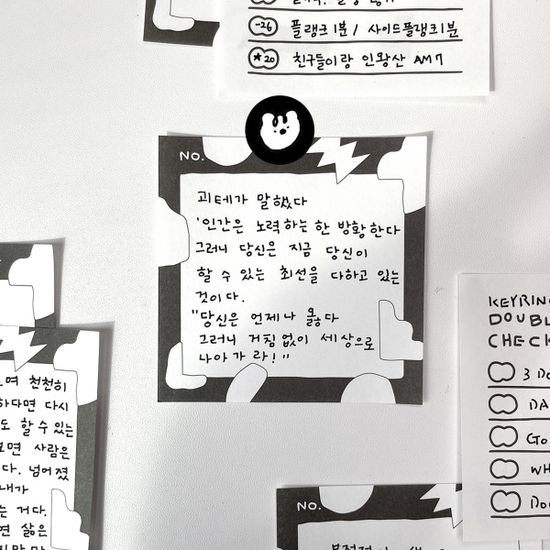 -26 플랭크 1분 / 사이드플랭크 1분
★20 친구들이랑 인왕산 AM 7
NO.
괴테가 말했다
'인간은 노력하는 한 방황한다
그러니 당신은 지금 당신이
할 수 있는 최선을 다하고 있는
것이다.
"당신은 언제나 옳다
그러니 거침없이 세상으로
나아가라!"
KEYRING
DOUBL
CHECK
3 Do
DA
Go
WH
Do
며 천천히
하다면 다시
도 할 수 있는
보면 사람은
다. 넘어졌
내가
는 거다.
면 삶은
NO.